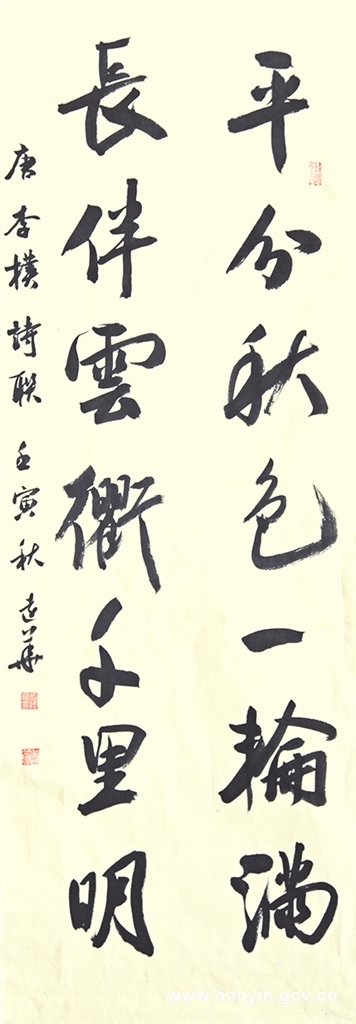 平分秋色一輪滿
長伴雲衢千里明
唐李樸詩聯 壬寅秋 志華
www.hanyin.gov.cn